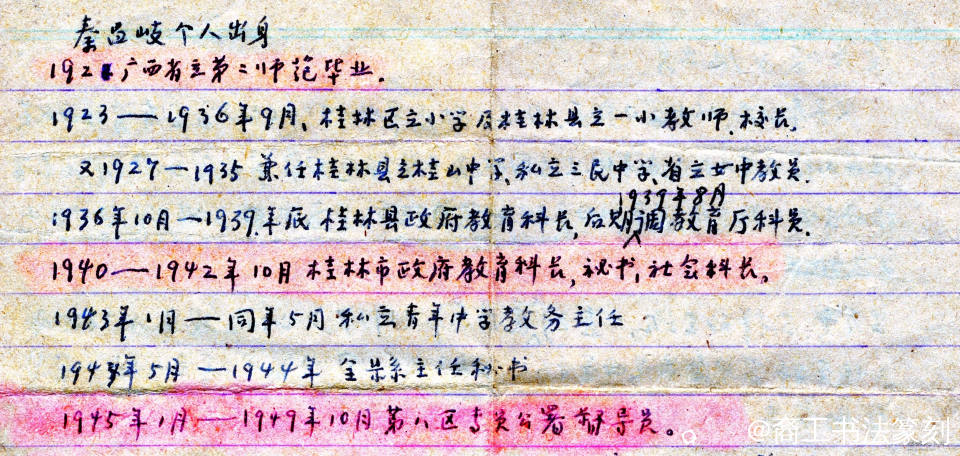 秦昌岐个人出身
1921广西省立第二师范毕业.
1923—1936年9月、桂林区立小学及桂林县立一小教师、校长.
又1927—1935 兼任桂林县立桂山中学、私立三民中学、省立女中教员.
1939年8月
1936年10月—1939.年底 桂林县政府教育科长,后期调教育厅科员.
1940—1942年10月 桂林市政府教育科长,秘书,社会科长。
1943年1月—同年5月 私立青年中学教务主任
1943年5月—1944年 全县主任秘书
1945年1月—1949年10月第八区专员公署督导员。
@裔工书法篆刻